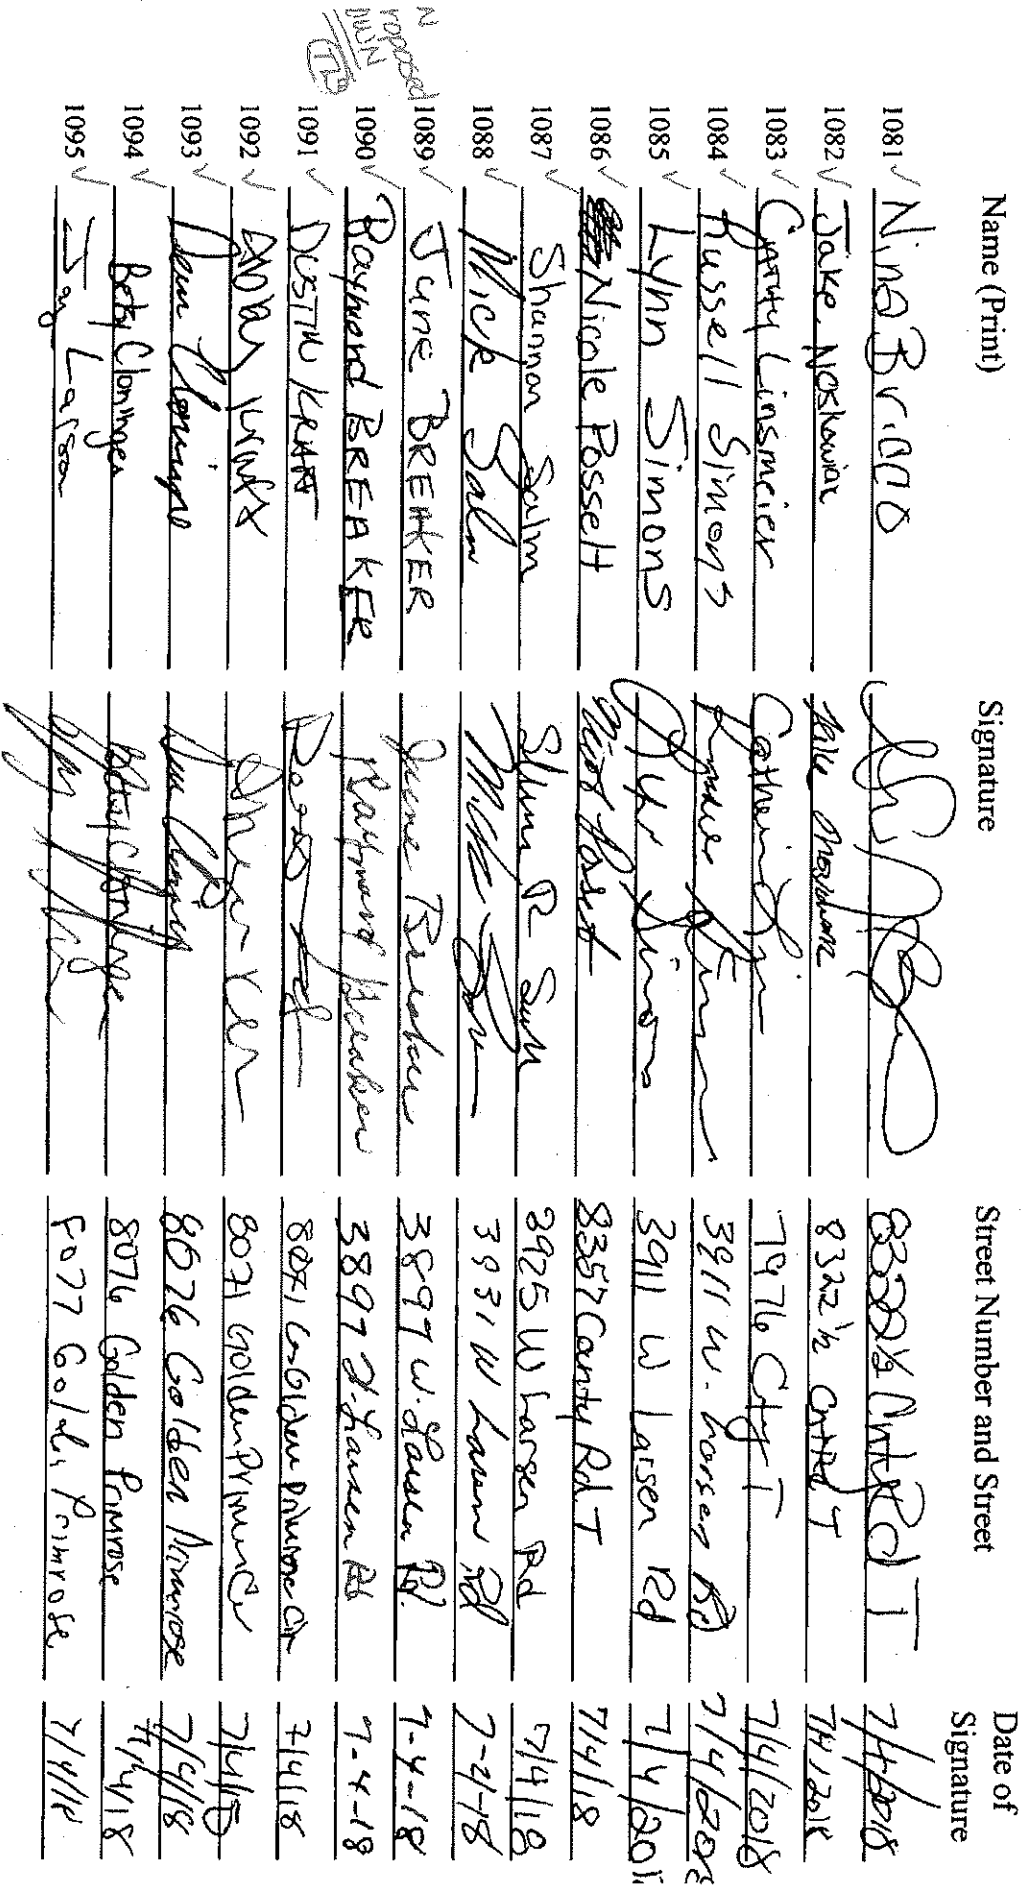 Name (Print) Signature Street Number and Street Date of Signature
1081 ✓ Nina Bricco 8322 1/2 Cnty Rd T 7/4/2018
1082 ✓ Jake Noskowiak 8322 1/2 Cnt Rd T 7/4/2018
1083 ✓ Cathy Linsmeier 7976 Cty T 7/4/2018
1084 ✓ Russell Simons 3911 W. Larsen Rd 7/4/2018
1085 ✓ Lynn Simons Lynn Simons 3911 W Larsen Rd 7/4/201
1086 ✓ Nicole Posselt 8357 County Rd T 7/4/18
1087 ✓ Shannon Salm 3925 W Larsen Rd 7/4/18
1088 ✓ Mick Salm 3931 W Larsen Rd 7-4-18
1089 ✓ June BREAKER June Breaker 3897 W. Larsen Rd. 7-4-18
1090 ✓ Raymond BREAKER Raymond Breaker 3897 W. Larsen Rd 7-4-18
1091 ✓ DUSTIN KRAFT 8071 Golden Primrose Cir 7/4/18
1092 ✓ Abby Kraft 8071 Golden Prim Cir 7/4/18
1093 ✓ 8076 Golden Primrose 7/4/18
1094 ✓ Betsy Cloninger Betsy Cloninger 8076 Golden Primrose 7/4/18
1095 ✓ Jay Larson 8077 Golden Primrose 7/4/18
N
roposed